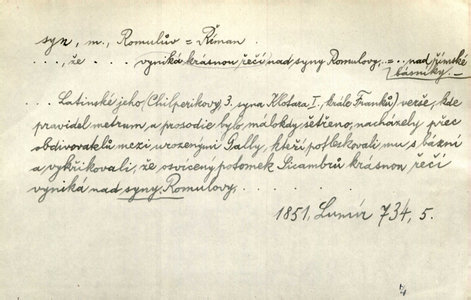 syn, m., Romulův = Říman . . .
. . . ., že . . vyniká krásnou řečí nad syny Romulovy, = .. nad římské
básníky. —
. . . Latinské jeho (Chilperikovy, 3. syna Klotara I., krále Franků) verše, kde
pravidel metrum, a prosodie bylo málokdy šetřeno, nacházely přec
obdivovatelů mezi urozenými Gally, kteří potleskovali mu s bázní
a vykřikovali, že osvícený potomek Sicambrů krásnou řečí
vyniká nad syny Romulovy, . . . . .
1851, Lumír 734, 5.